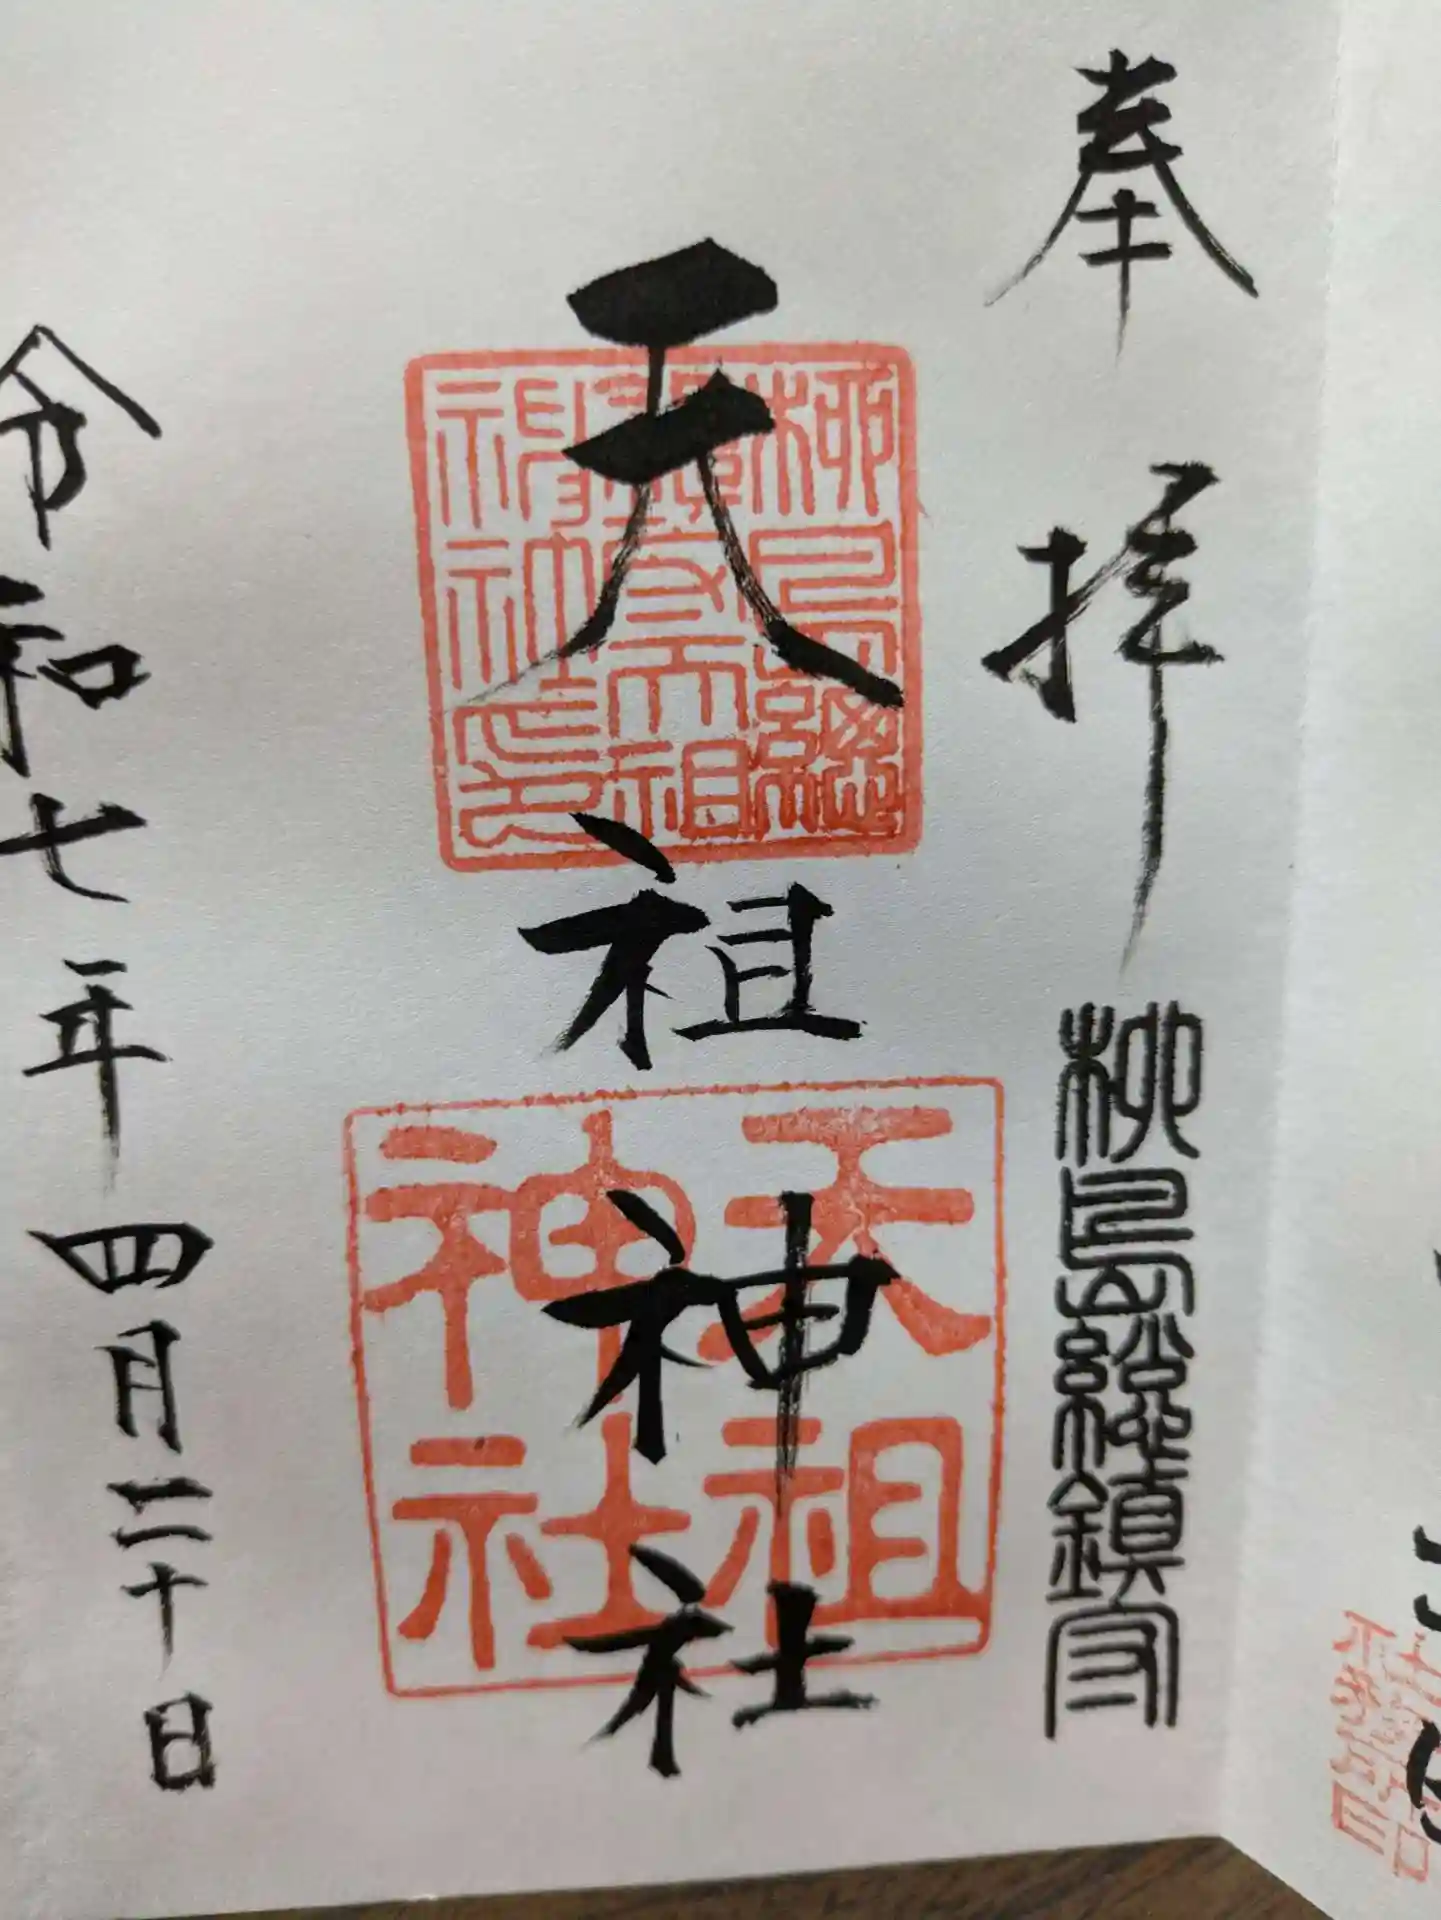 奉拝
柳島総鎮守
天祖神社
柳島総
鎮守天祖
神社印
天祖
神社
令和七年四月二十日